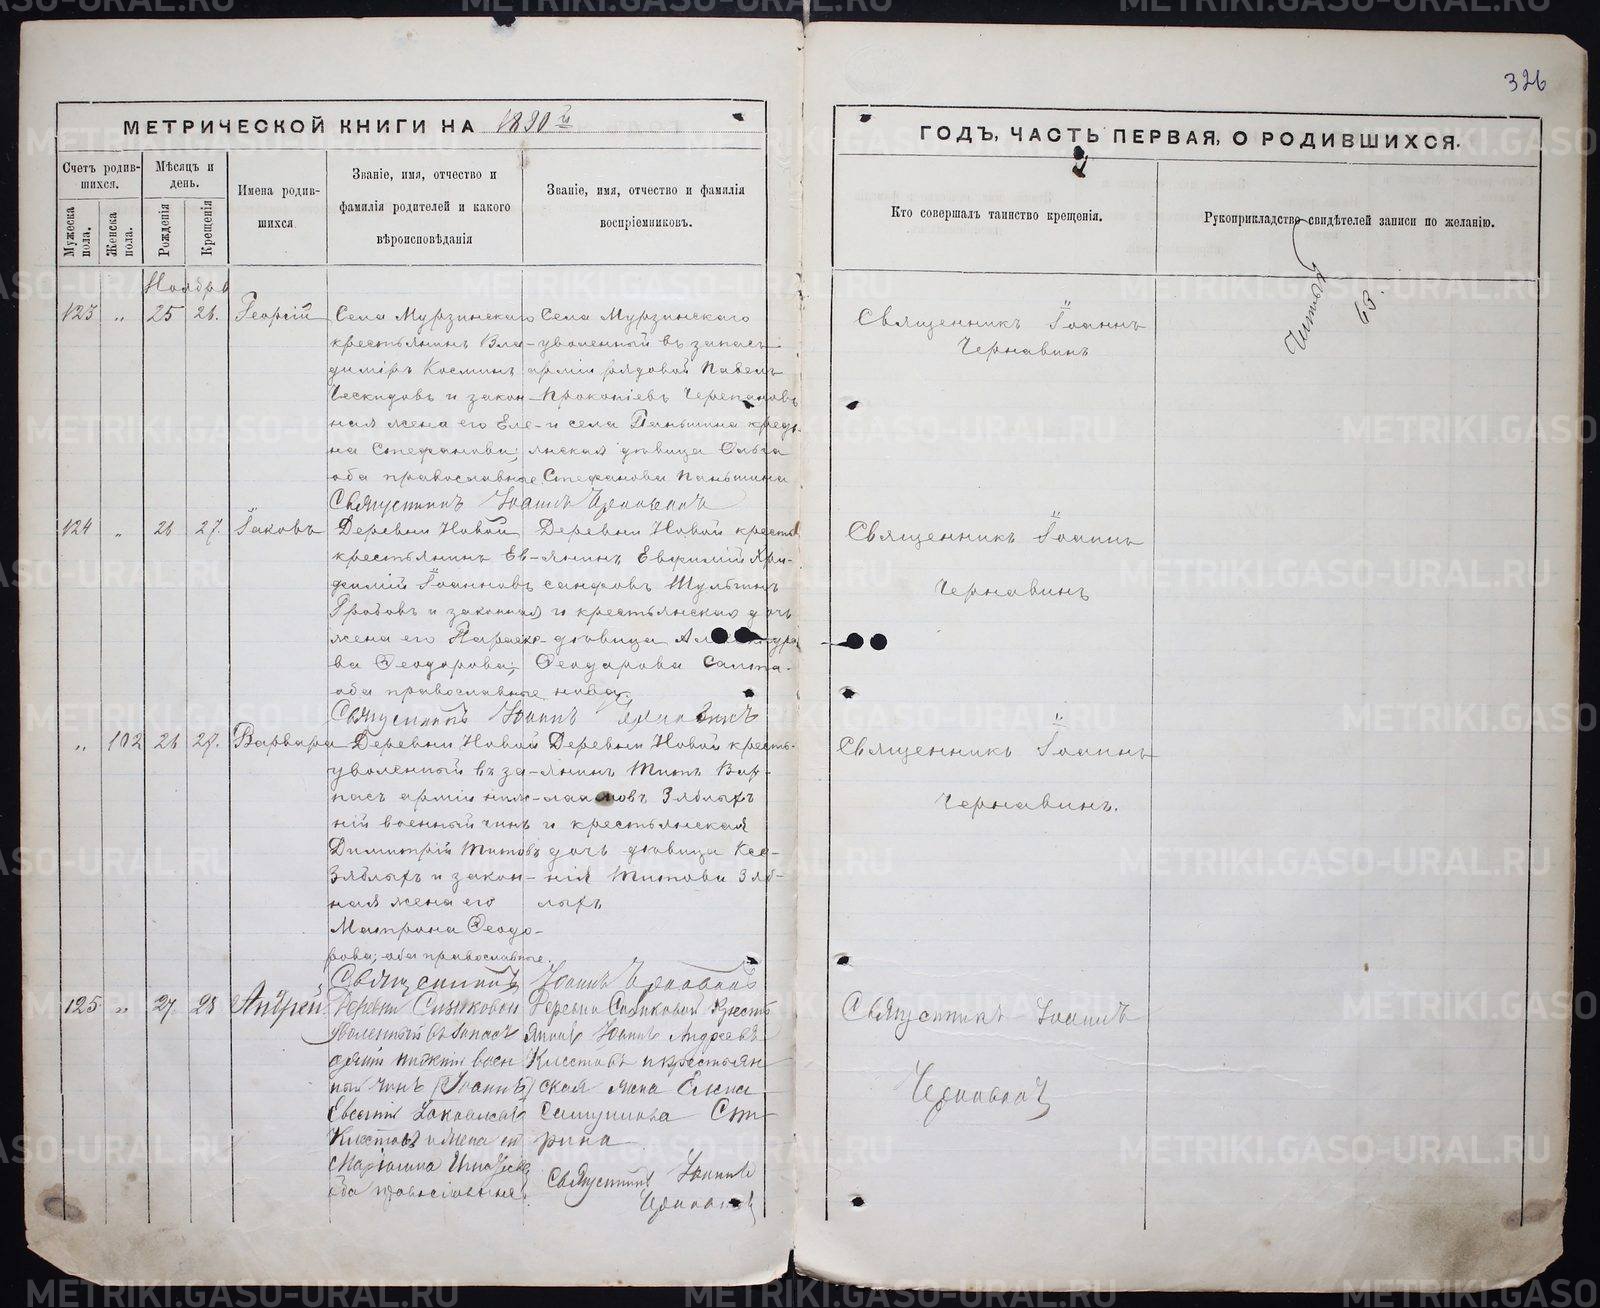 326
МЕТРИЧЕСКОЙ КНИГИ НА 1890й
ГОДЪ, ЧАСТЬ ПЕРВАЯ, О РОДИВШИХСЯ.
Счетъ родив-
шихся.
Мужеска пола.
Женска пола.
Мѣсяцъ и
день.
Рожденія
Крещенія
Имена родив-
шихся
Званіе, имя, отчество и
фамилія родителей и какого
вѣроисповѣданія
Званіе, имя, отчество и фамилія
воспріемниковъ.
Кто совершалъ таинство крещенія.
Рукоприкладство свидѣтелей записи по желанію.
Ноября
123 „ 25 26. Георгій
Села Мурзинскаго
крестьянинъ Вла-
диміръ Косминъ
Ческидовъ и закон-
ная жена его Еле-
на Стефанова;
оба православные
Села Мурзинскаго
уволенный въ запасъ
арміи рядовой Павелъ
Прокопіевъ Черепановъ
и села Паньшина кресть-
янская дѣвица Ольга
Стефанова Паньшина
Священникъ Іоаннъ Чернавинъ
Священникъ Іоаннъ
Чернавинъ
124 „ 26 27. Іаковъ
Деревни Новой
крестьянинъ Ев-
фимій Іоанновъ
Гробовъ и законная
жена его Параске-
ва Ѳеодорова;
оба православные
Деревни Новой кресть
янинъ Евфимій Хри-
санфовъ Шульгинъ
и крестьянская дочь
дѣвица
Ѳеодорова
Священникъ Іоаннъ
Священникъ Іоаннъ
Чернавинъ
„ 102 26 27. Варвара
Деревни Новой
уволенный въ за-
пасъ арміи ниж-
ній военный чинъ
Димитрій Титовъ
Зяблыхъ и закон-
ная жена его
Матрона Ѳеодо-
рова; оба православные.
Деревни Новой кресть-
янинъ Титъ Вар-
лаамовъ Зяблыхъ
и крестьянская
дочь дѣвица Ксе-
нія Титова Зяб-
лыхъ
Священникъ Іоаннъ Чернавинъ
Священникъ Іоаннъ
Чернавинъ.
125 „ 27 28 Андрей
Деревни
уволенный въ запасъ
арміи нижній воен
ный чинъ Іоаннъ
и жена его
оба православные
Деревни
янинъ Іоаннъ Андреевъ
и крестьян
ская жена Елена
рина
Священникъ Іоаннъ
Чернавинъ
Священникъ Іоаннъ
Чернавинъ